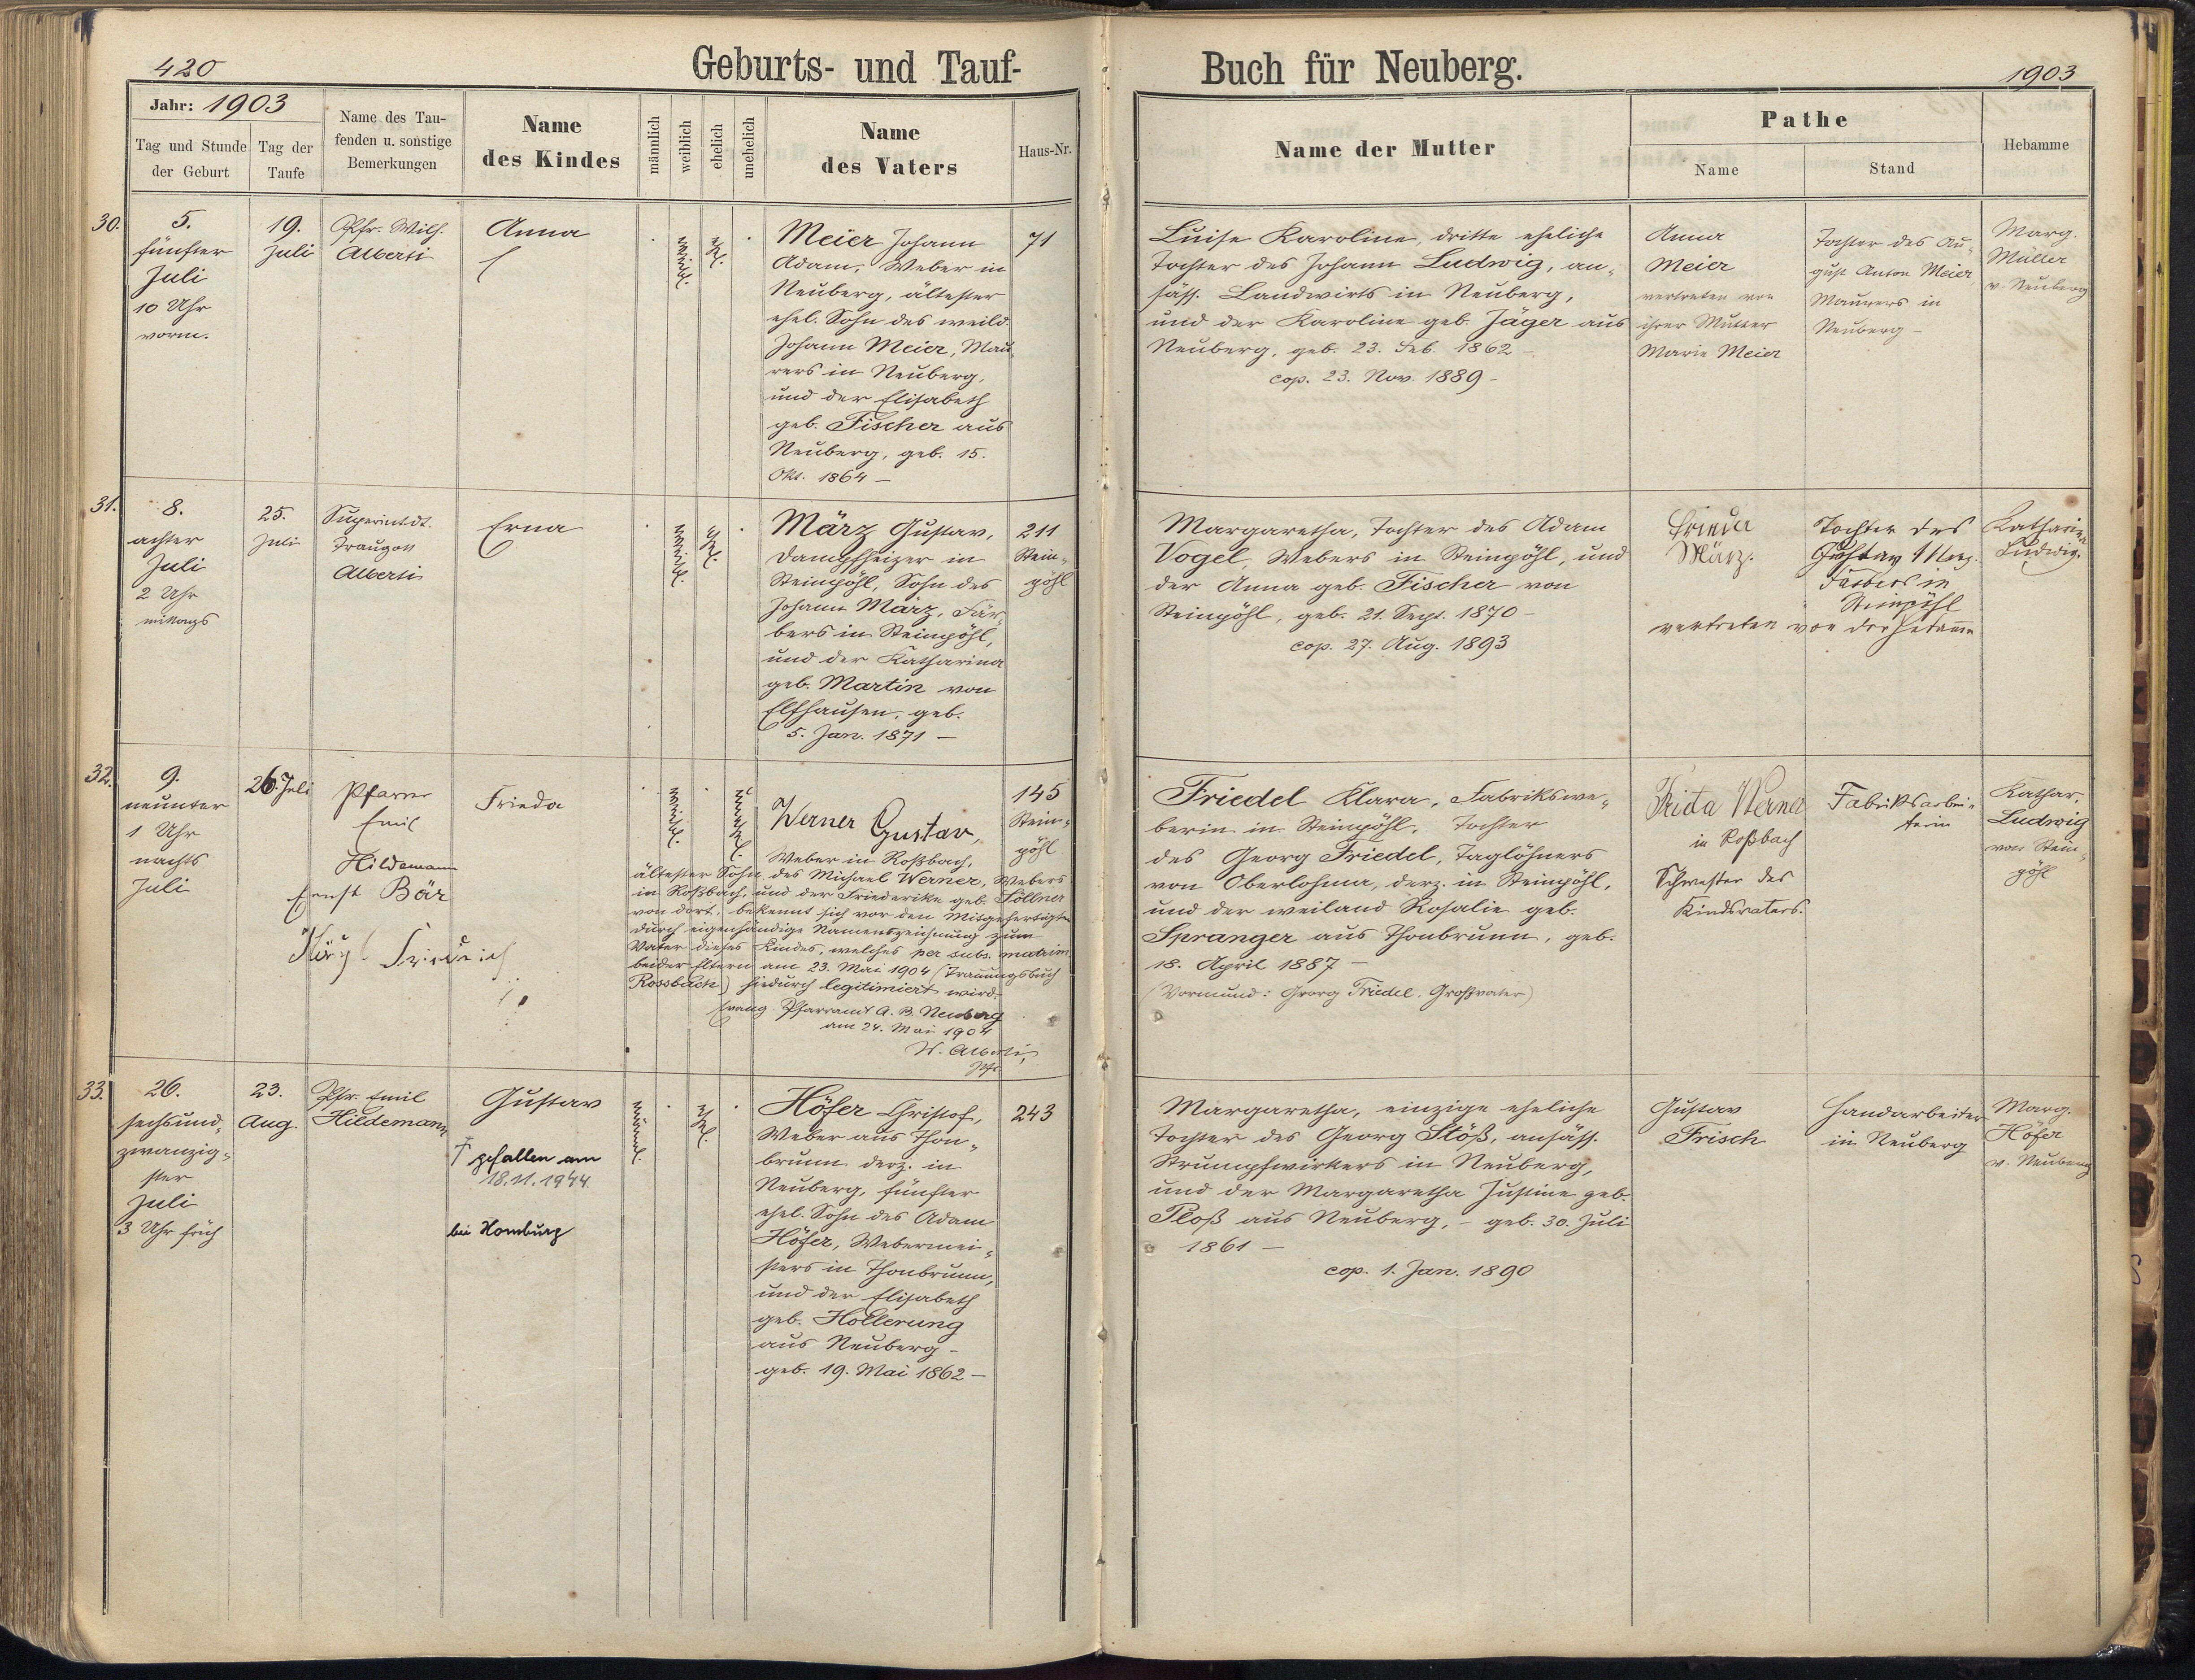 420
Geburts- und Tauf-
Buch für Neuberg.
1903
Jahr: 1903
Tag und Stunde
der Geburt
Tag der
Taufe
Name des Tau-
fenden u. sonstige
Bemerkungen
Name
des Kindes
männlich
weiblich
ehelich
unehelich
Name
des Vaters
Haus-Nr.
Name der Mutter
Pathe
Name
Stand
Hebamme
30.
5.
fünfter
Juli
10 Uhr
vorm.
19.
Juli
Pfr. Wilh.
Alberti
Anna
weibl.
ehel.
Meier Johann
Adam, Weber in
Neuberg, ältester
ehel. Sohn des weild.
Johann Meier, Mau-
rers in Neuberg,
und der Elisabeth
geb. Fischer aus
Neuberg, geb. 15.
Okt. 1864 –
71
Luise Karoline, dritte eheliche
Tochter des Johann Ludwig, an-
säss. Landwirts in Neuberg,
und der Karoline geb. Jäger aus
Neuberg, geb. 23. Feb. 1862 –
cop. 23. Nov. 1889 –
Anna
Meier
vertreten von
ihrer Mutter
Marie Meier
Tochter des Au-
gust Anton Meier,
Maurers in
Neuberg –
Marg.
Müller
v. Neuberg
31.
8.
achter
Juli
2 Uhr
mittags
25.
Juli
Superintdt.
Traugott
Alberti
Erna
weibl.
ehel.
März Gustav,
Dampfheizer in
Steinpöhl, Sohn des
Johann März, Fär-
bers in Steinpöhl,
und der Katharina
geb. Martin von
Elfhausen, geb.
5. Jan. 1871 –
211
Stein-
pöhl
Margaretha, Tochter des Adam
Vogel, Webers in Steinpöhl, und
der Anna geb. Fischer von
Steinpöhl, geb. 21. Sept. 1870 –
cop. 27. Aug. 1893
Frieda
März.
Tochter des
Gustav März.
Färbers in
Steinpöhl
vertreten von der Hebamme
Katharina
Ludwig.
32.
9.
neunter
1 Uhr
nachts
Juli
26. Juli
Pfarrer
Emil
Hildemann
Ernst Bär
Friedrich
Frieda
weibl.
unehel.
Werner Gustav,
Weber in Roßbach,
ältester Sohn des Michael Werner, Webers
in Roßbach, und der Friederike geb. Söllner
von dort, bekennt sich vor den Mitgefertigten
durch eigenhändige Namenszeichnung zum
Vater dieses Kindes, welches per subs. matrim.
beider Eltern am 23. Mai 1904 (Trauungsbuch
Rossbach) hiedurch legitimiert wird.
Evang. Pfarramt A. B. Neuberg
am 24. Mai 1904
W. Alberti,
Pfr.
145
Stein-
pöhl
Friedel Klara, Fabrikswe-
berin in Steinpöhl, Tochter
des Georg Friedel, Taglöhners
von Oberlohma, derz. in Steinpöhl,
und der weiland Rosalie geb.
Spranger aus Thonbrunn, geb.
18. April 1887 –
(Vormund: Georg Friedel, Großvater)
Frida Werner
in Roßbach
Schwester des
Kindsvaters.
Fabriksarbei-
terin
Kathar.
Ludwig
von Stein-
pöhl
33.
26.
sechsund-
zwanzig-
ster
Juli
3 Uhr früh
23.
Aug.
Pfr. Emil
Hildemann
Gustav
† gefallen am
18.11.1944
bei Homburg
männl.
ehel.
Höfer Christof,
Weber aus Thon-
brunn derz. in
Neuberg, fünfter
ehel. Sohn des Adam
Höfer, Webermei-
sters in Thonbrunn,
und der Elisabeth
geb. Hollerung
aus Neuberg –
geb. 19. Mai 1862 –
243
Margaretha, einzige eheliche
Tochter des Georg Stöß, ansäss.
Strumpfwirkers in Neuberg,
und der Margaretha Justine geb.
Ploß aus Neuberg, – geb. 30. Juli
1861 –
cop. 1. Jan. 1890
Gustav
Frisch
Handarbeiter
in Neuberg
Marg.
Höfer
v. Neuberg